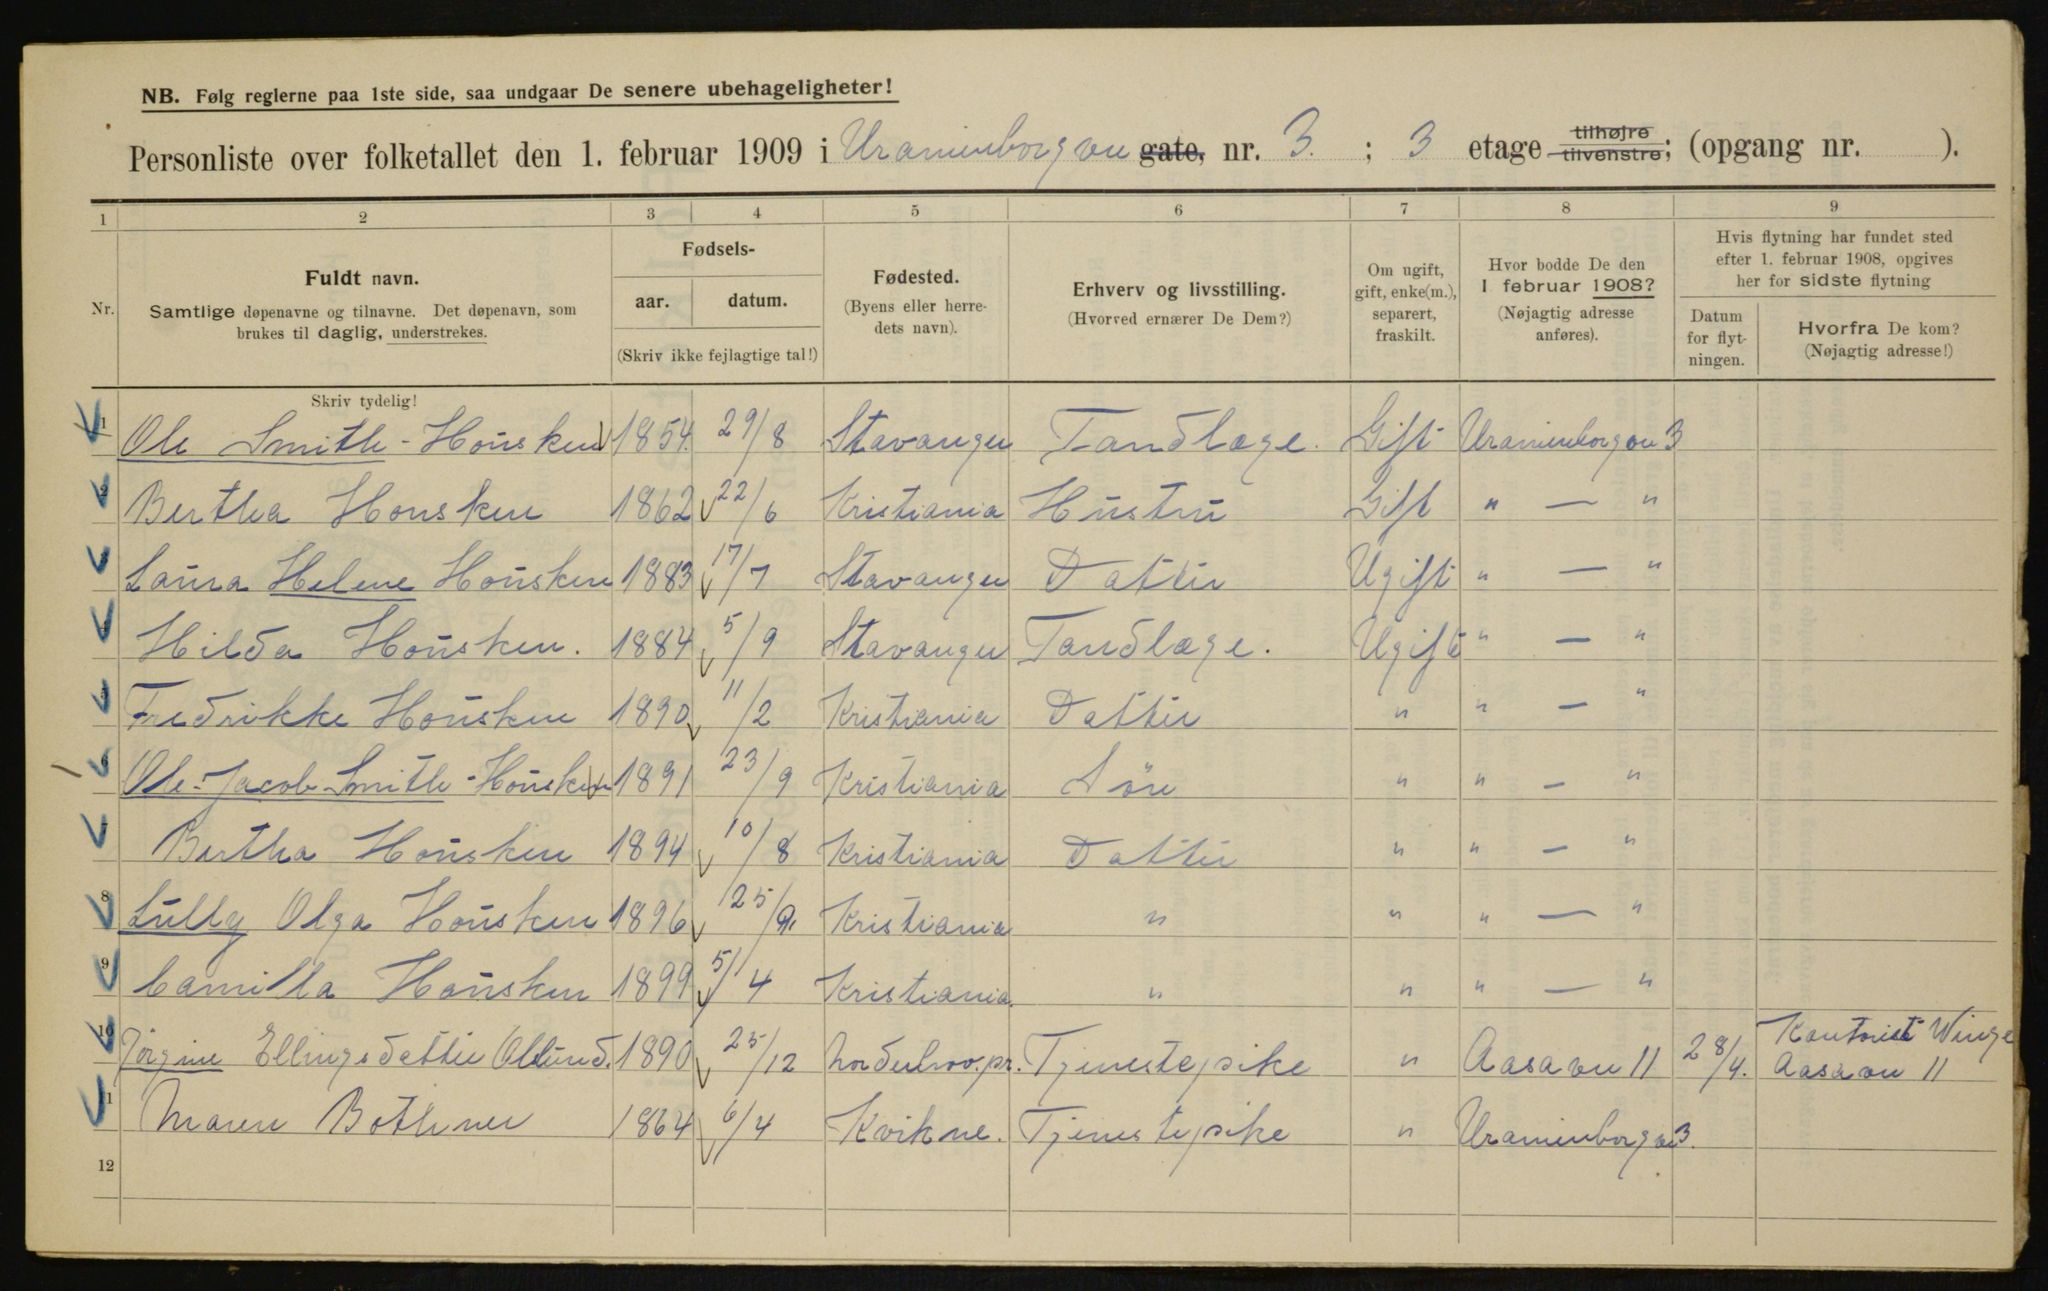 NB. Følg reglerne paa 1ste side, saa undgaar De senere ubehageligheter!
Personliste over folketallet den 1. februar 1909 i Uranienborgvn gate, nr. 3. ; 3 etage tilhøjre tilvenstre; (opgang nr. ).
1 2 3 4 5 6 7 8 9
Nr.
Fuldt navn.
Samtlige døpenavne og tilnavne. Det døpenavn, som
brukes til daglig, understrekes.
Skriv tydelig!
Fødsels-
aar. datum.
(Skriv ikke fejlagtige tal!)
Fødested.
(Byens eller herre-
dets navn).
Erhverv og livsstilling.
(Hvorved ernærer De Dem?)
Om ugift,
gift, enke(m.),
separert,
fraskilt.
Hvor bodde De den
1 februar 1908?
(Nøjagtig adresse
anføres).
Hvis flytning har fundet sted
efter 1. februar 1908, opgives
her for sidste flytning
Datum
for flyt-
ningen.
Hvorfra De kom?
(Nøjagtig adresse!)
1 Ole Smith-Housken 1854. 29/8 Stavanger Tandlæge. Gift Uranienborgvn 3
2 Bertha Housken 1862 22/6 Kristiania Hustru Gift " — "
3 Laura Helene Housken 1883 17/7 Stavanger Datter Ugift " — "
4 Hilda Housken. 1884 5/9 Stavanger Tandlæge. Ugift " — "
5 Fredrikke Housken 1890 11/2 Kristiania Datter " " — "
6 Ole-Jacob Smith-Housken 1891 23/9 Kristiania Søn " " — "
7 Bertha Housken 1894 10/8 Kristiania Datter " " — "
8 Lully Olga Housken 1896 25/9 Kristiania " " " — "
9 Camilla Housken 1899 5/4 Kristiania. " " " — "
10 Jørgine Ellingsdatter 1890 25/12 Norderhov.pr. Tjenestepike " Aasavn 11 28/4. Kontorist Winge
Aasavn 11
11 Maren Bothner 1864 6/4 Kvikne. Tjenestepike " Uranienborgvn 3.
12